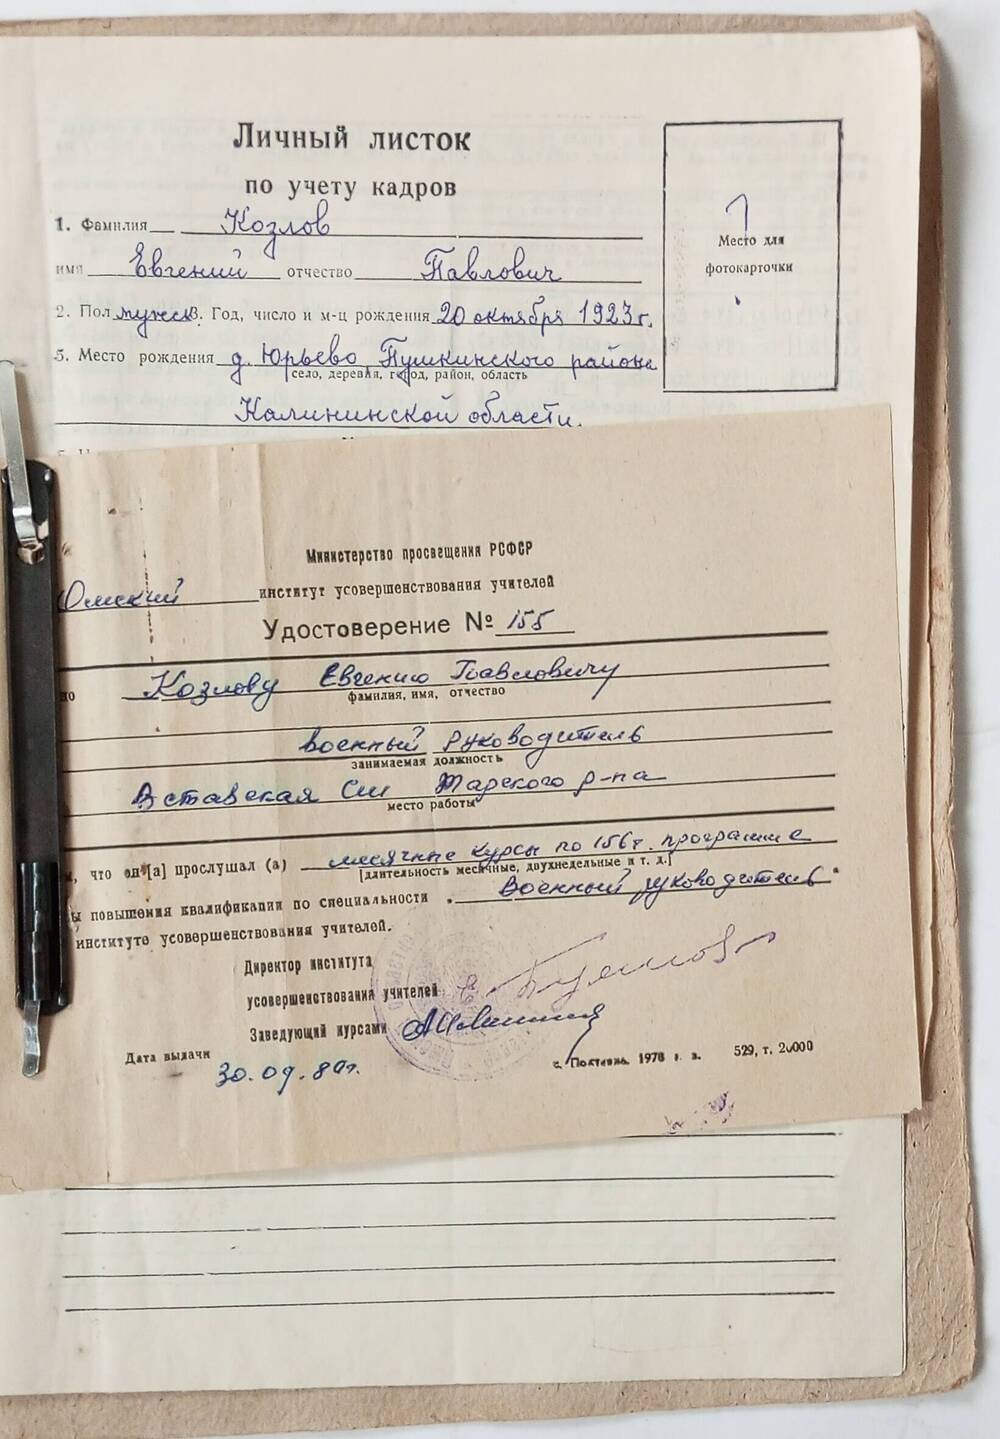 Личный листок
по учету кадров
1. Фамилия Козлов
имя Евгений отчество Павлович
Место для
фотокарточки
2. Пол мужск 3. Год, число и м-ц рождения 20 октября 1923 г.
5. Место рождения д. Юрьево, Пушкинского района
село, деревня, город, район, область
Калининской области.
Министерство просвещения РСФСР
Омский институт усовершенствования учителей
Удостоверение № 155
но Козлову Евгению Павловичу
фамилия, имя, отчество
военный руководитель
занимаемая должность
Вставская СШ Тарского р-на
место работы
, что он [а] прослушал (а) месячные курсы по 156 г. программе
[длительность месячные, двухнедельные и т. д.]
ы повышения квалификации по специальности „Военный руководитель"
институте усовершенствования учителей.
Директор института
усовершенствования учителей
Заведующий курсами
Дата выдачи
30.09.80г.
1978 г. з. 529, т. 20000